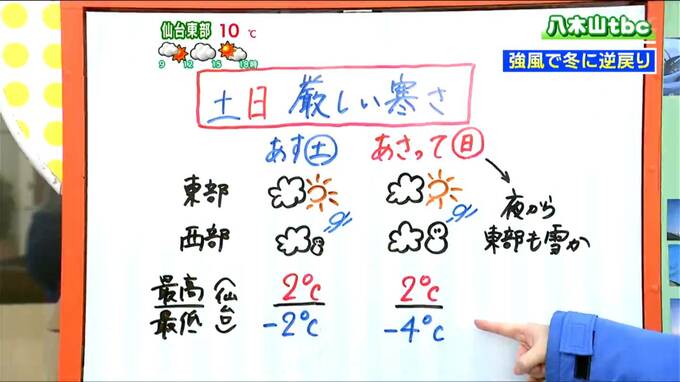 仙台東部 10℃
9 12 15 18時
八木山tbc
強風で冬に逆戻り
土日 厳しい寒さ
あす(土) あさって(日)
東部
西部
夜から
東部も雪か
最高 (仙台) 2℃ 2℃
最低 -2℃ -4℃